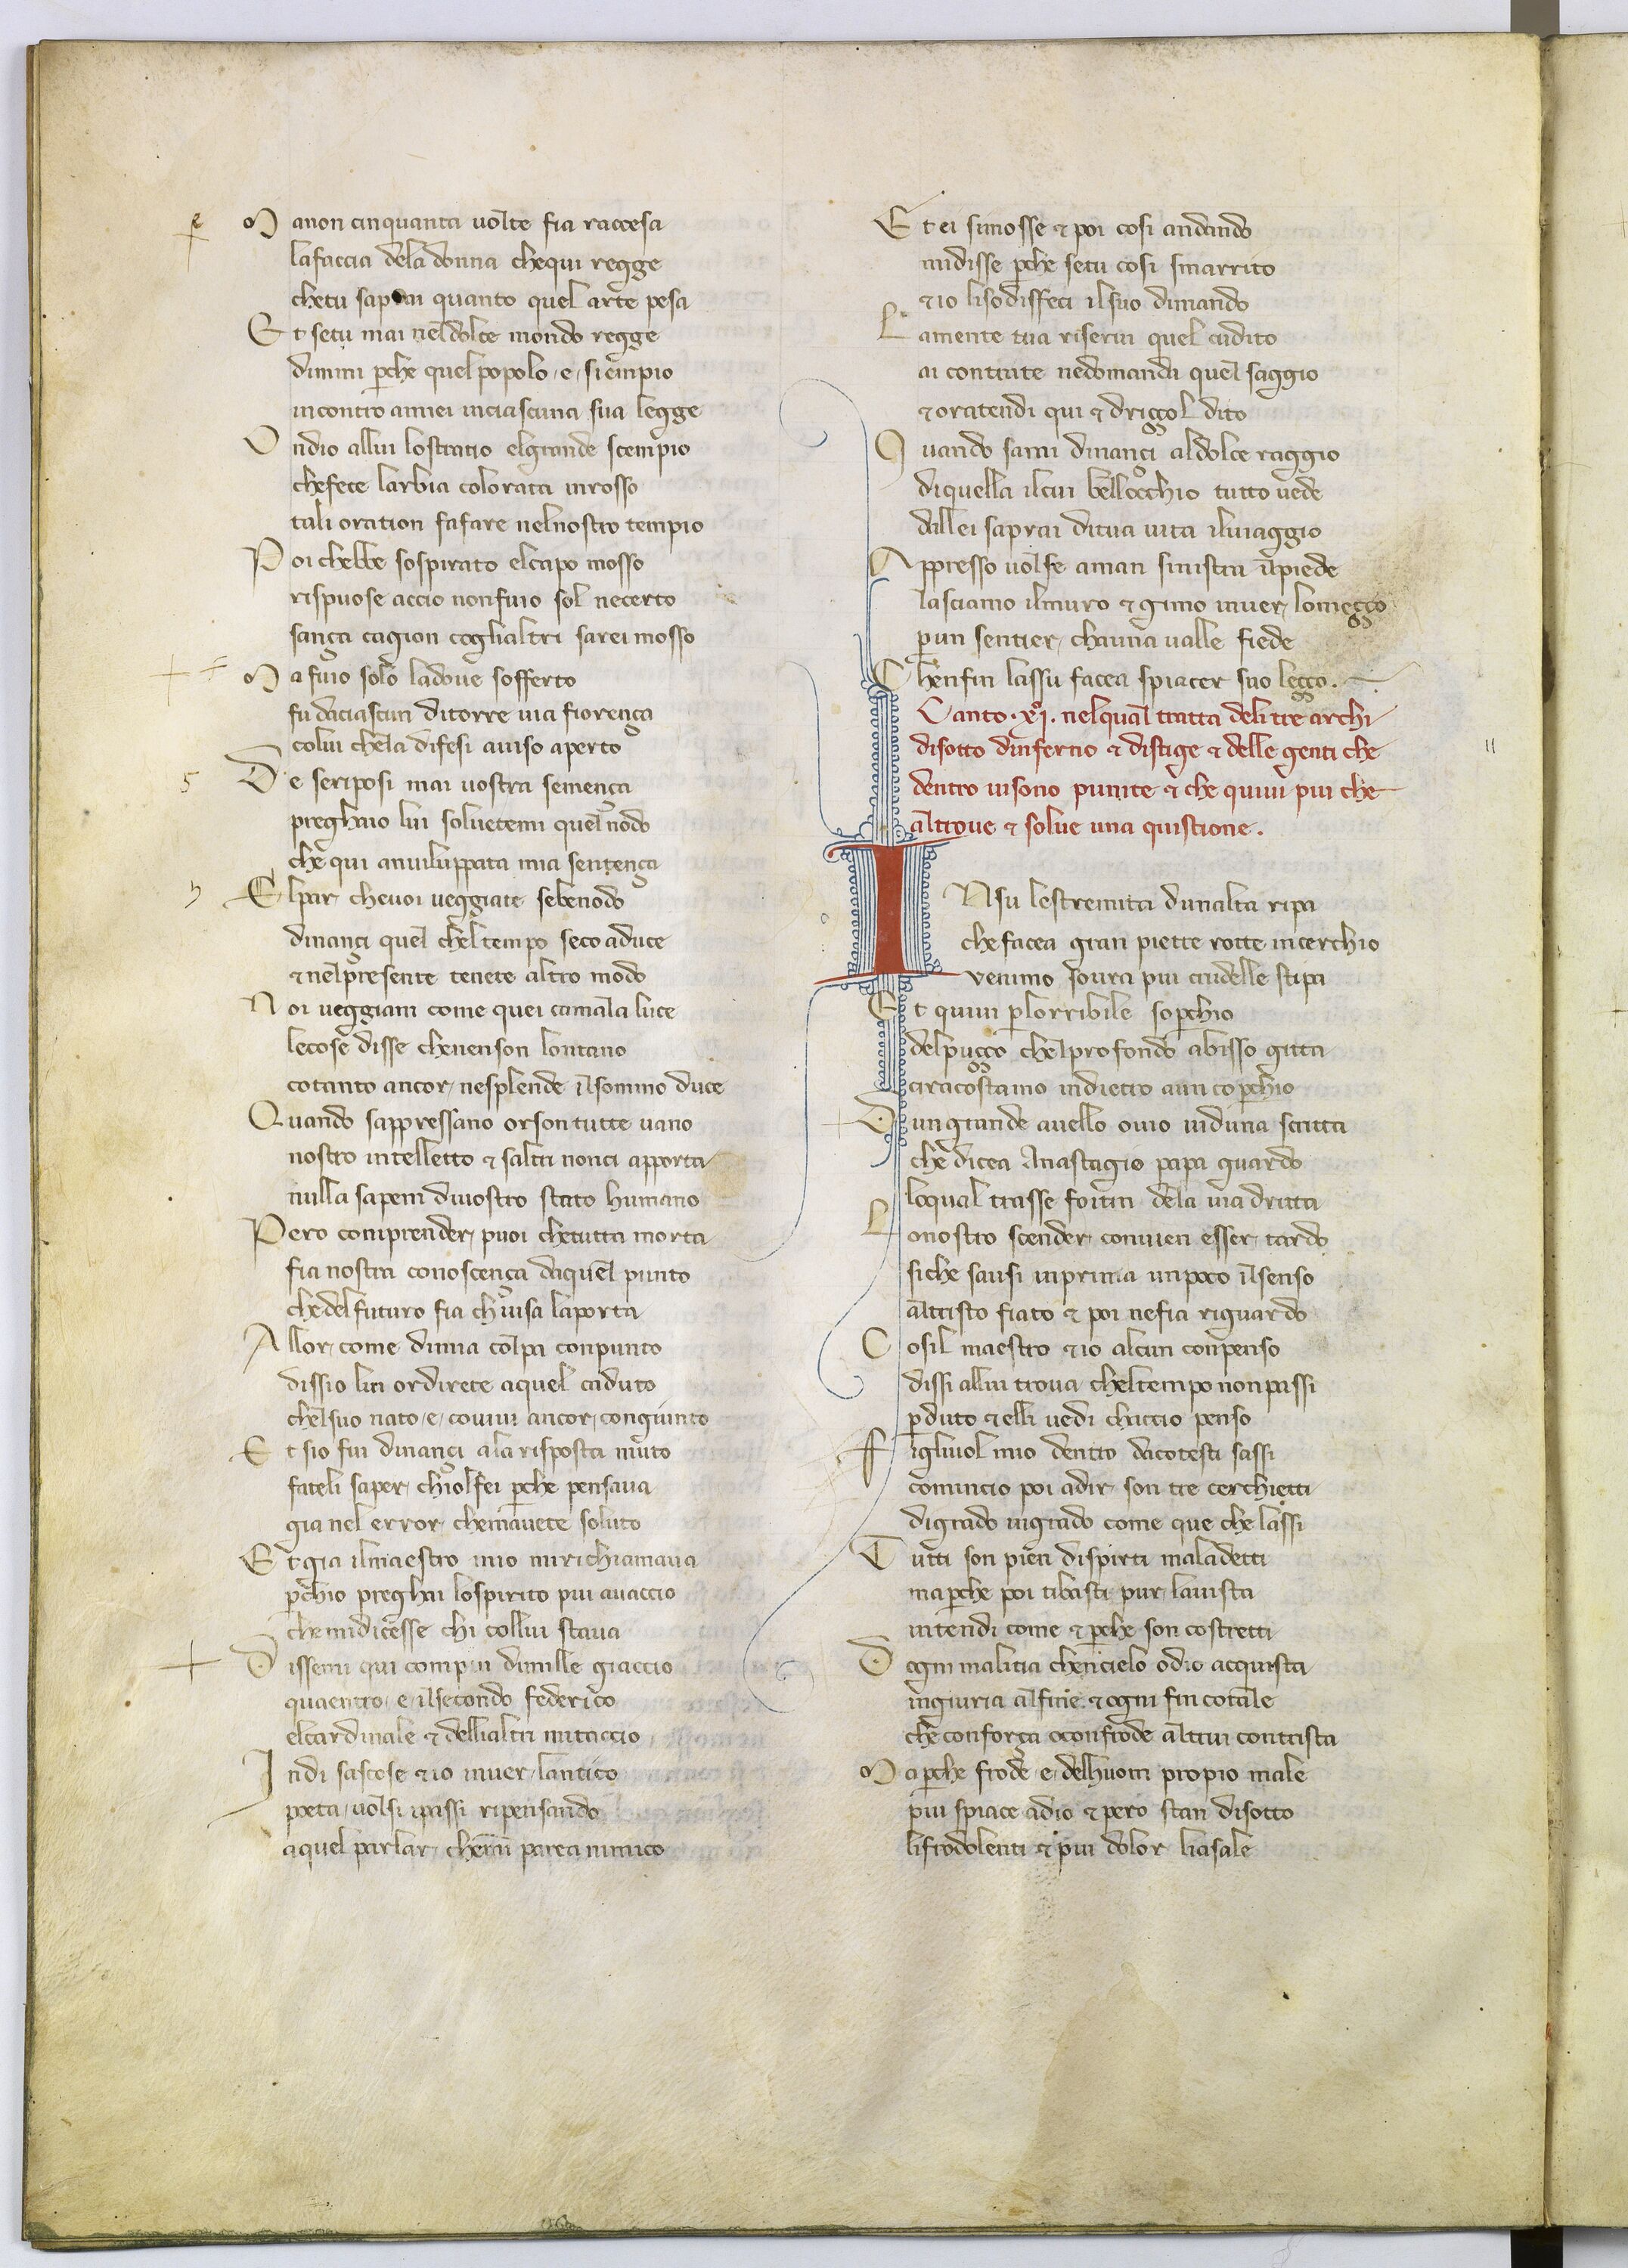 M anon cinquanta uolte fia raccesa
lafaccia dela donna chequi regge
chetu saprai quanto quel arte pesa
E t setu mai nel dolce mondo regge
dimmi ꝑche quel popolo .e. si empio
incontro amiei inciascuna sua legge
O ndio allui lostratio elgrande scempio
chefece larbia colorata inrosso
tali oration fafare nelnostro tempio
P oi chebbe sospirato elcapo mosso
rispuose accio nonfuio sol necerto
sança cagion cogliáltri sarei mosso
M a fuio solo ladoue sofferto
fu daciascun ditorre uia fiorença
colui chela difesi auiso aperto
D e seriposi mai uostra semença
preghaio lui soluetemi quel nodo
che qui anuiluppata mia sentença
E lpar cheuoi ueggiate sebenodo
dinançi quel cheltempo seco aduce
⁊ nelpresente tenete altro modo
N oi ueggiam come quei camala luce
lecose disse chenenson lontano
cotanto ancor nesplende ilsommo duce
Q uando sappressano orson tutte uano
nostro intelletto ⁊ saltri nonci apporta
nulla sapem diuostro stato humano
P ero comprender puoi chetutta morta
fia nostra conoscença daquel punto
chedelfuturo fia chiusa laporta
A llor come dimia colpa conpunto
dissio lui ordirete aquel caduto
chelsuo nato .e. couiui ancor congiunto
E t sio fui dinançi ala risposta muto
fateli saper chiolfei ꝑche pensaua
gia nel error chemauete soluto
E t gia ilmaestro mio mirichiamaua
ꝑchio preghai lospirito piu auaccio
che midicesse chi collui staua
D issemi qui conpiu dimille giaccio
quaentro .e. ilsecondo federico
elcardinale ⁊ dellialtri mitaccio
I ndi sascose ⁊ io inuer lantico
poeta uolsi ipassi ripensando
aquel parlar chemi parea nimico
E t ei simosse ⁊ poi cosi andando
midisse ꝑche setu cosi smarrito
⁊ io lisodisfeci ilsuo dimando
L amente tua riserui quel cudito
ai contrate nedomanda quel saggio
⁊ oratendi qui ⁊ driççol dito
Q uando sarai dinançi aldolce raggio
diquella ilcui bellocchio tutto uede
dallei saprai ditua uita iluiaggio
A ppresso uolse aman sinistra ilpiede
lasciamo ilmuro ⁊ gimo inuer lomeçço
ꝑun sentier chauna ualle fiede
C henfin lassu facea spiacer suo leçço.
Canto .xi. nelqual tratta deli tre archi
disotto dinferno ⁊ distige ⁊ delle genti che
dentro uisono punite ⁊ che quiui piu che
altroue ⁊ solue una quistione.
11
I Nsu lestremita dunalta ripa
che facea gran piette rotte incerchio
venimo soura piu crudelle stipa
E t quiui ꝑlorribile soꝑchio
delpuçço chelprofondo abisso gitta
ciracostamo indietro aun coꝑchio
D un grande auello ouio uiduna scritta
che dicea Anastagio papa guardo
loqual trasse fotin dela uia dritta
L onostro scender conuien esser tardo
siche sausi inprima unpoco ilsenso
altristo fiato ⁊ poi nefia riguardo
C osil maestro ⁊ io alcun conpenso
dissi allui troua cheltempo nonpassi
ꝑduto ⁊ elli uedi chaccio penso
F igliuol mio dentro dacotesti sassi
cominciò poi adir son tre cerchietti
digrado ingrado come que che lassi
T utti son pien dispirti maladetti
ma ꝑche poi tibasti pur lauista
intendi come ⁊ ꝑche son costretti
D ogni malitia chencielo odio acquista
ingiuria alfine ⁊ ogni fin cotale
che conforça oconfrode altrui contrista
M a ꝑche frode .e. delhuom propio male
piu spiace adio ⁊ pero stan disotto
lifrodolenti ⁊ piu dolor liasale